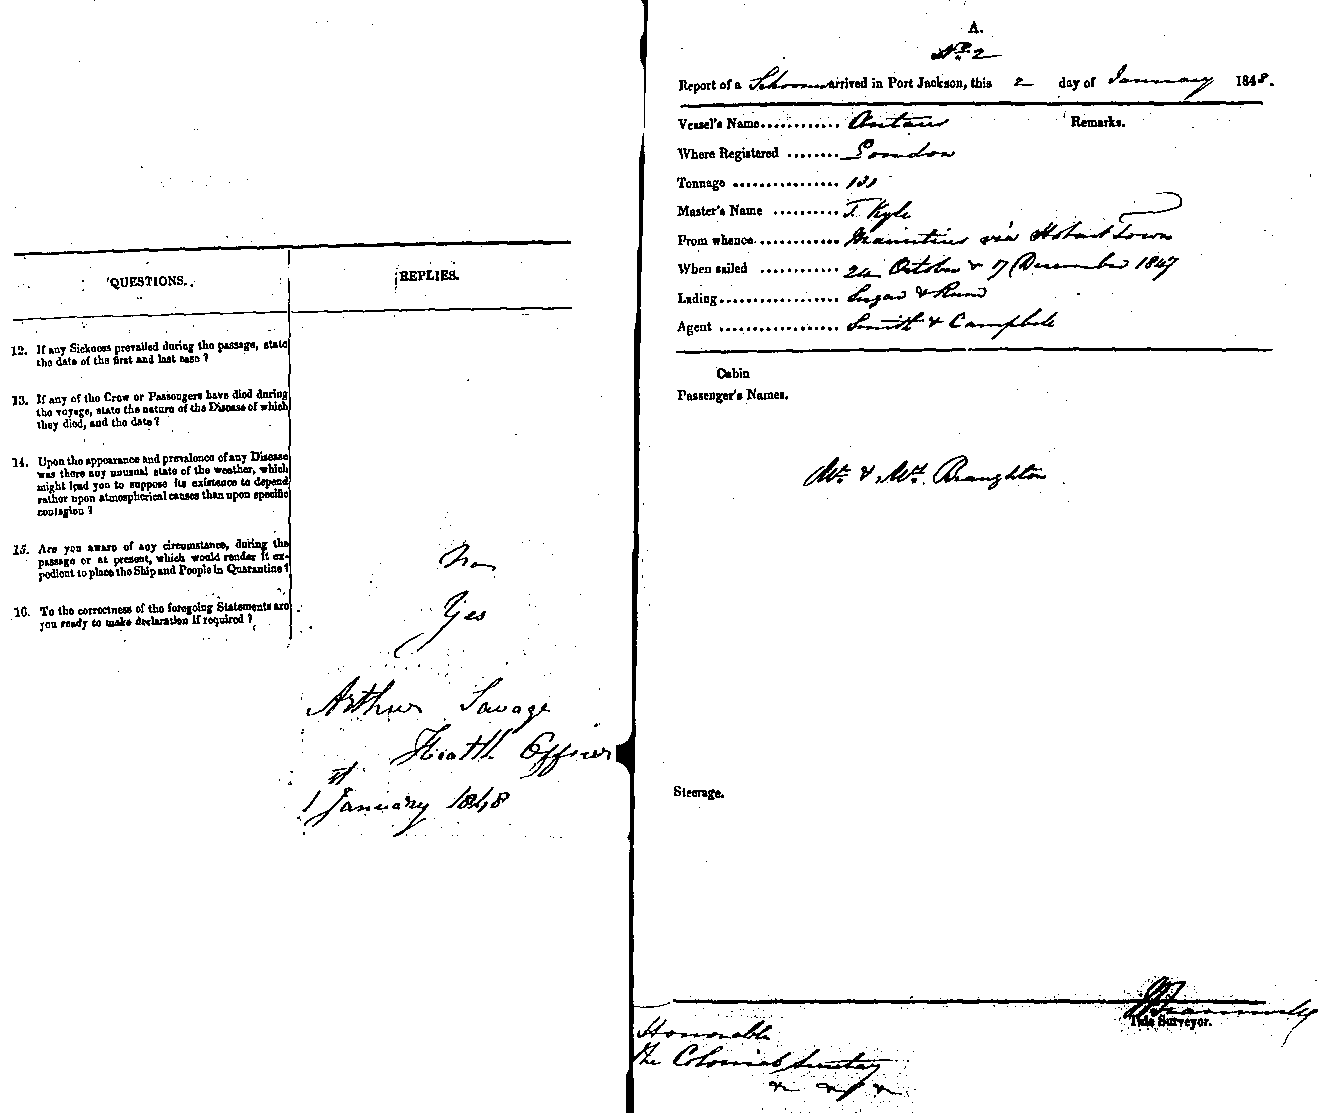 QUESTIONS.
REPLIES.
12. If any Sickness prevailed during the passage, state
the date of the first and last case ?
13. If any of the Crew or Passengers have died during
the voyage, state the nature of the Disease of which
they died, and the date ?
14. Upon the appearance and prevalence of any Disease
was there any unusual state of the weather, which
might lead you to suppose its existence to depend
rather upon atmospherical causes than upon specific
contagion ?
15. Are you aware of any circumstance, during the
passage or at present, which would render it ex-
pedient to place the Ship and People in Quarantine ?
No
16. To the correctness of the foregoing Statements are
you ready to make declaration if required ?
Yes
Arthur Savage
Health Officer
1st January 1848
A.
No. 2
Report of a Schooner arrived in Port Jackson, this 2 day of January 1848.
Vessel's Name............ Antaus
Remarks.
Where Registered ........ London
Tonnage ................ 131
Master's Name .......... J. Kyle
From whence............ Mauritius via Hobart Town
When sailed ............ 24 October & 17 December 1847
Lading.................. Sugar & Rum
Agent .................. Smith & Campbell
Cabin
Passenger's Names.
Mr. & Mrs. Braughton
Steerage.
Tide Surveyor.
Honorable
The Colonial Secretary